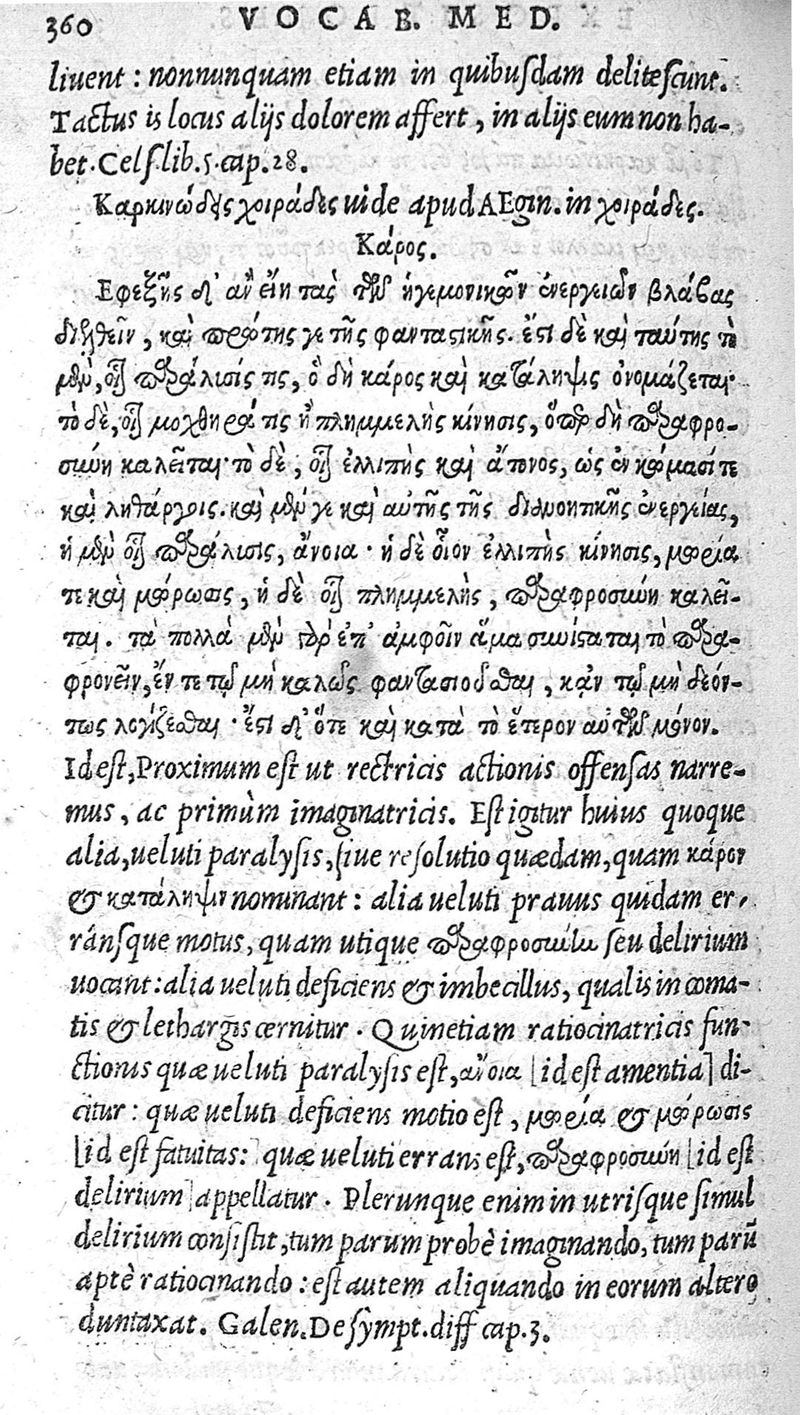 360 VOCAB. MED.
liuent : nonnunquam etiam in quibusdam delitescunt.
Tactus is locus alijs dolorem affert, in alijs eum non ha-
bet. Cels. lib. 5. cap. 28.
Καρκινώδης χοιράδες uide apud AEgin. in χοιράδες.
Κάρος.
Εφεξῆς δ' ἂν εἴη τὰς τῶν ἡγεμονικῶν ἐνεργειῶν βλάβας
διελθεῖν, καὶ πρώτης γε τῆς φανταστικῆς. ἔστι δὲ καὶ ταύτης τὸ
μὲν, οἷον παράλυσίς τις, ὃ δὴ κάρος καὶ κατάληψις ὀνομάζεται·
τὸ δὲ, οἷον μοχθηρά τις ἢ πλημμελὴς κίνησις, ὅπερ δὴ παραφρο-
σύνη καλεῖται· τὸ δὲ, οἷον ἐλλιπὴς καὶ ἄτονος, ὡς ἐν κώμασί τε
καὶ ληθάργοις. καὶ μὲν γε καὶ αὐτῆς τῆς διανοητικῆς ἐνεργείας,
ἡ μὲν οἷον παράλυσις, ἄνοια· ἡ δὲ οἷον ἐλλιπὴς κίνησις, μωρία
τε καὶ μώρωσις, ἡ δὲ οἷον πλημμελὴς, παραφροσύνη καλεῖ-
ται. τὰ πολλὰ μὲν γὰρ ἐπ' ἀμφοῖν ἅμα συνίσταται τὸ παρα-
φρονεῖν, ἔν τε τῷ μὴ καλῶς φαντασιοῦσθαι, κἀν τῷ μὴ δεόν-
τως λογίζεσθαι· ἔστι δ' ὅτε καὶ κατὰ τὸ ἕτερον αὐτῶν μόνον.
Id est, Proximum est ut rectricis actionis offensas narre-
mus, ac primùm imaginatricis. Est igitur huius quoque
alia, ueluti paralysis, siue resolutio quædam, quam κάρον
& κατάληψιν nominant : alia ueluti prauus quidam er-
rânsque motus, quam utique παραφροσύνην seu delirium
uocant: alia ueluti deficiens & imbecillus, qualis in coma-
tis & lethargis cernitur. Quinetiam ratiocinatricis fun-
ctionis quæ ueluti paralysis est, ἄνοια [id est amentia] di-
citur : quæ ueluti deficiens motio est, μωρία & μώρωσις
[id est fatuitas:] quæ ueluti errans est, παραφροσύνη [id est
delirium] appellatur. Plerunque enim in utrisque simul
delirium consistit, tum parum probè imaginando, tum parũ
aptè ratiocinando : est autem aliquando in eorum altero
duntaxat. Galen. De sympt. diff cap. 3.